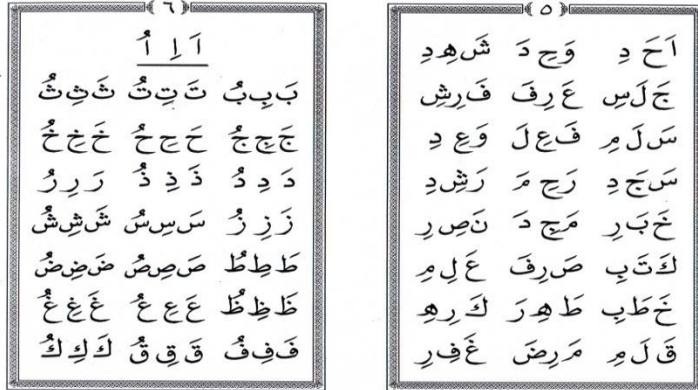 ٥
اَحَدِ وَحِدَ شَهِدِ
جَلَسِ عَرِفَ فَرِشِ
سَلَمِ فَعِلَ وَعِدِ
سَجَدِ رَحِمَ رَشِدِ
خَبَرِ مَجِدَ نَصِرِ
كَتَبِ صَرِفَ عَلِمِ
خَطَبِ طَهِرَ كَرِهِ
قَلَمِ مَرِضَ غَفِرِ
٦
اَ اِ اُ
بَبِبُ تَتِتُ ثَثِثُ
جَجِجُ حَحِحُ خَخِخُ
دَدِدُ ذَذِذُ رَرِرُ
زَزِزُ سَسِسُ شَشِشُ
طَطِطُ صَصِصُ ضَضِضُ
ظَظِظُ عَعِعُ غَغِغُ
فَفِفُ قَقِقُ كَكِكُ